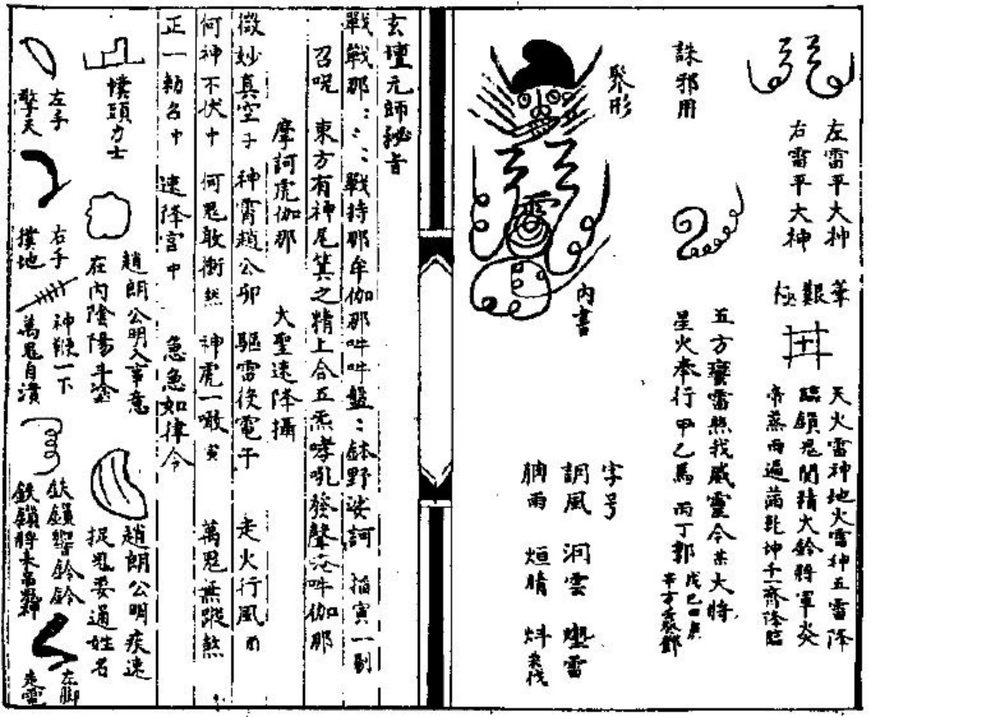 左雷平大神
右雷平大神
誅邪用
聚形
筆
艱
極
天火雷神地火雷神五雷降
臨鎖鬼關精大鈴將軍炎
帝蒸雨遍滿乾坤千齊降臨
五方蠻雷熬我威靈今某大將
星火奉行甲乙馬丙丁郭
內書
字号
調風 洞雲
雨 烜晴
玄壇元帥秘音
戰戰那:::戰持那牟伽那吽吽盤:鉢野娑訶 掐寅一剔
召呪 東方有神尾箕之精上合五炁哮吼發聲唵吽伽那
摩訶虎伽那 大聖速降攝
微妙真空子 神霄趙公卯 驅雷役電午 走火行風酉
何神不伏中 何鬼敢衝然 神虎一噉寅 萬鬼無蹤煞
正一勅名中 速降宮中 急急如律令
幞頭力士
趙朗公明入事意
在內陰陽斗塗
趙朗公明疾速
捉鬼要通姓名
左手
擎天
右手
撲地
神鞭一下
萬鬼自潰
鉄鎖響鈴鈴
鉄鎖將來
左脚
走電